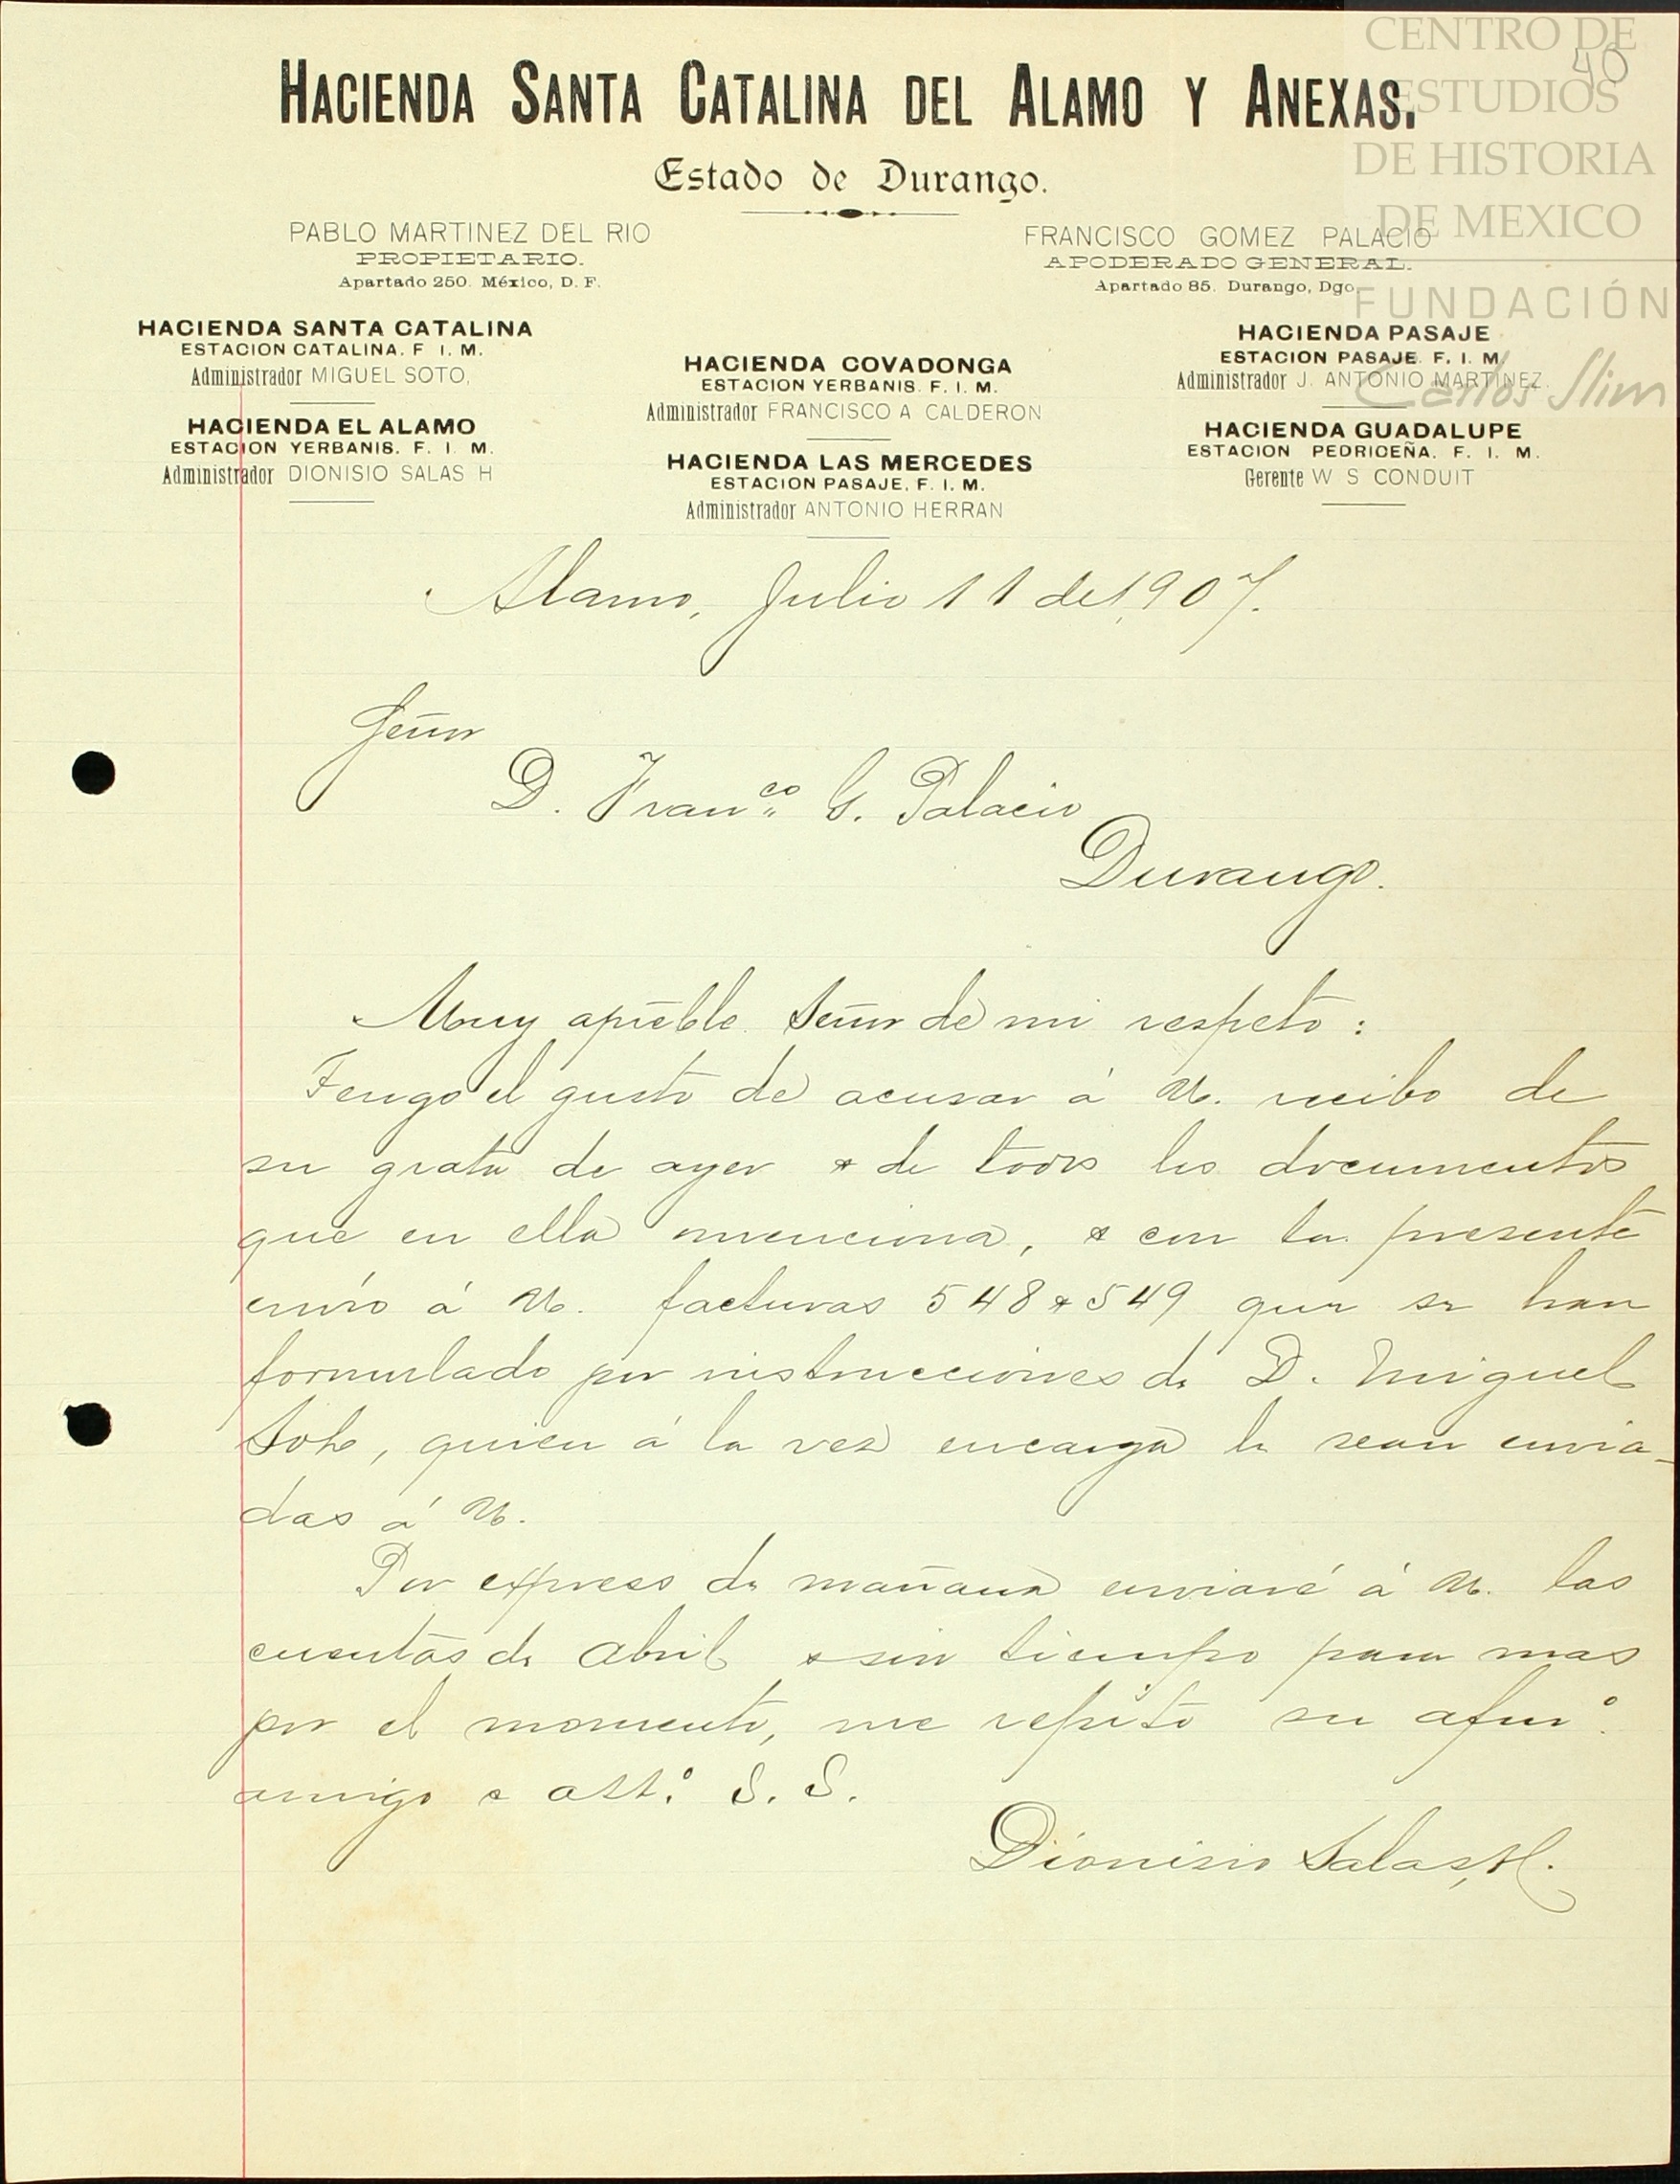 CENTRO DE
ESTUDIOS
DE HISTORIA
DE MEXICO
FUNDACIÓN
Carlos Slim
40
HACIENDA SANTA CATALINA DEL ALAMO Y ANEXAS.
Estado de Durango.
PABLO MARTINEZ DEL RIO
PROPIETARIO.
Apartado 250. México, D. F.
FRANCISCO GOMEZ PALACIO
APODERADO GENERAL.
Apartado 85. Durango, Dgo.
HACIENDA SANTA CATALINA
ESTACION CATALINA. F I. M.
Administrador MIGUEL SOTO,
HACIENDA EL ALAMO
ESTACION YERBANIS. F. I M.
Administrador DIONISIO SALAS H
HACIENDA COVADONGA
ESTACION YERBANIS. F. I. M.
Administrador FRANCISCO A CALDERON
HACIENDA LAS MERCEDES
ESTACION PASAJE, F. I. M.
Administrador ANTONIO HERRAN
HACIENDA PASAJE
ESTACION PASAJE F. I. M
Administrador J. ANTONIO MARTINEZ.
HACIENDA GUADALUPE
ESTACION PEDRICEÑA. F. I. M.
Gerente W S CONDUIT
Alamo, Julio 11 de 1,907.
Señor
D. Franco. G. Palacio
Durango.
Muy apreble. Señor de mi respeto:
Tengo el gusto de acusar á U. recibo de
su grata de ayer & de todos los documentos
que en ella menciona, & con la presente
envío á U. facturas 548 & 549 que se han
formulado por instrucciones de D. Miguel
Soto, quien á la vez encarga le sean envia-
das á U.
Por express de mañana enviaré á U. las
cuentas de Abril & sin tiempo para mas
por el momento, me repito su afmo.
amigo & att.o S. S.
Dionisio Salas, H.